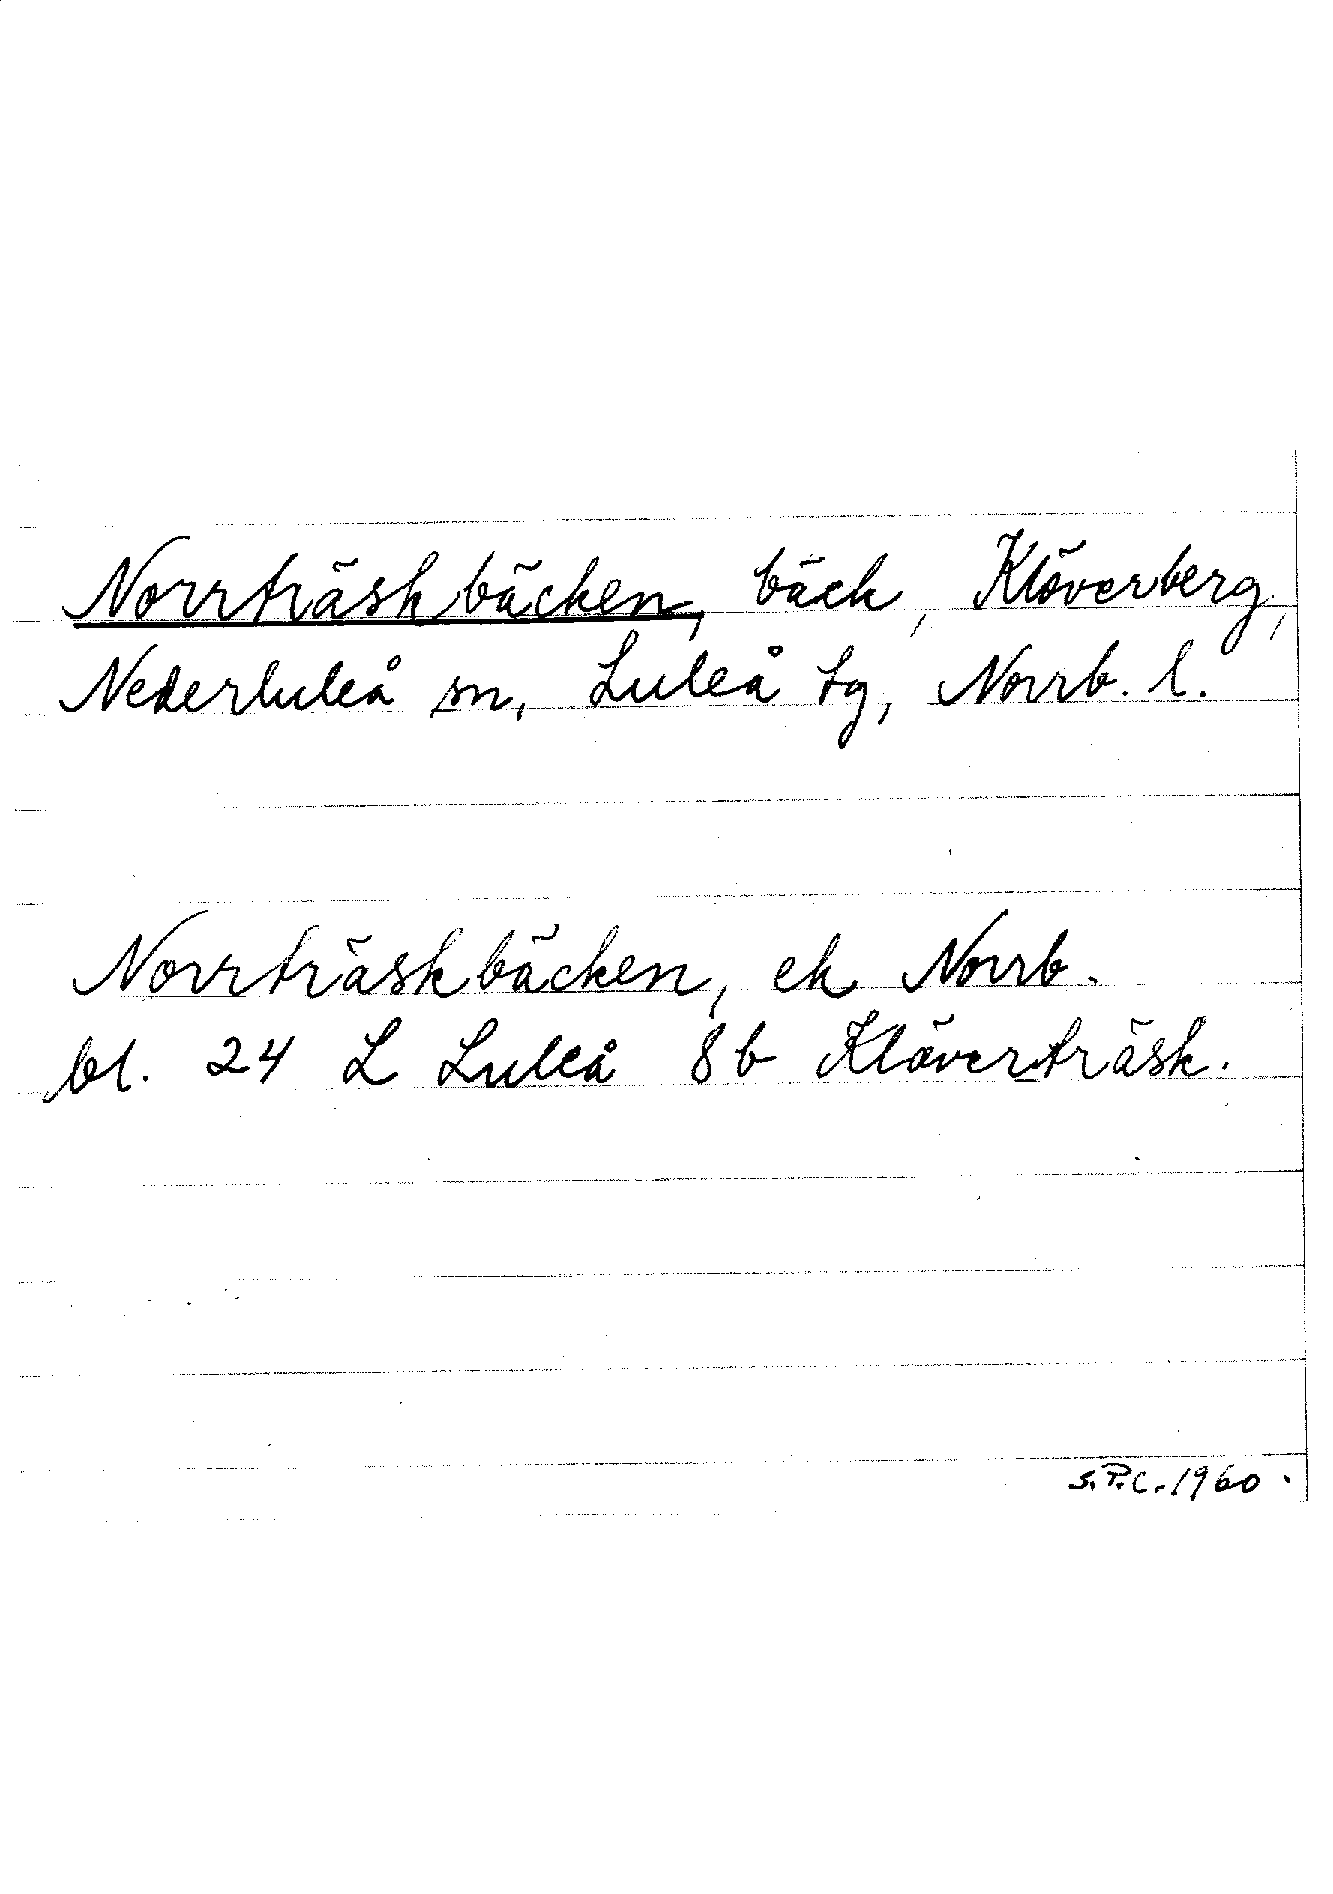 Norrträskbäcken, bäck, Klöverberg,
Nederluleå sn, Luleå tg, Norrb. l.
Norrträskbäcken, ek Norrb.
bl. 24 L Luleå 8b Klöverträsk.
S.P.C. 1960.